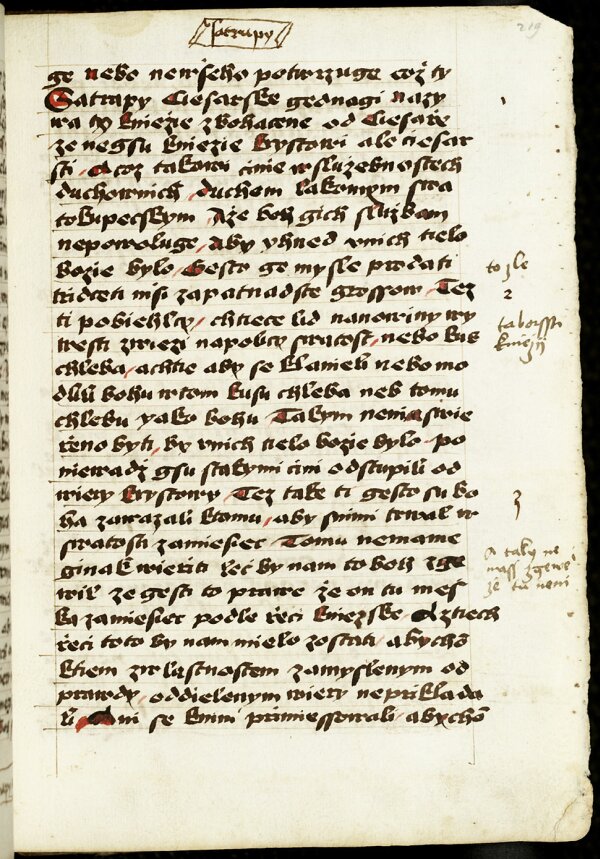 satrapy
219
ge nebo newsseho potwrzuge což ty
Satrapy Ciesarske gednagi nazy
wa ty kniezie zbohacene od Ciesaře
že negsu kniezie krystowi ale ciesar
sti A coz takowi činie w služebnostech
duchownich duchem lakomym swa
tokupeckym Aže boh gich službam
nepowoluge Aby yhned w nich tielo
bozie bylo Gesto ge mysle prodati
třidceti msi za patnadste grossow Tez
ti pobiehlcy chtiece lid na nowiny wy
westi zwiezi na polircy swatost nebo kus
chleba a chtie aby se klanieli nebo mo
dlili bohu w tom kusu chleba neb tomu
chlebu yako bohu Takym nenie swie
řeno byti by w nich tielo bozie bylo po
niewadž gsu s takymi čini odstupili od
wiery krystowy Tez take ti gesto su bo
ha zawazali k tomu aby s nimi trwal w
swatosti za miesiec Tomu nemame
ginak wieřiti lec by nam to boh zge
wil ze gest to prawe že on tu mess
ka za miesiec podle řeči kniezske A z tiech
řeči toto by nam mielo zostati abychō
k tiem zwlastnostem zamyslenym od
prawdy oddielenym wiery nepřiklada
li Ani se k nim přimiessowali abychō
to zle
2
taborssti
kniezij
3
A taky ne
mass zgewe
že tu neni